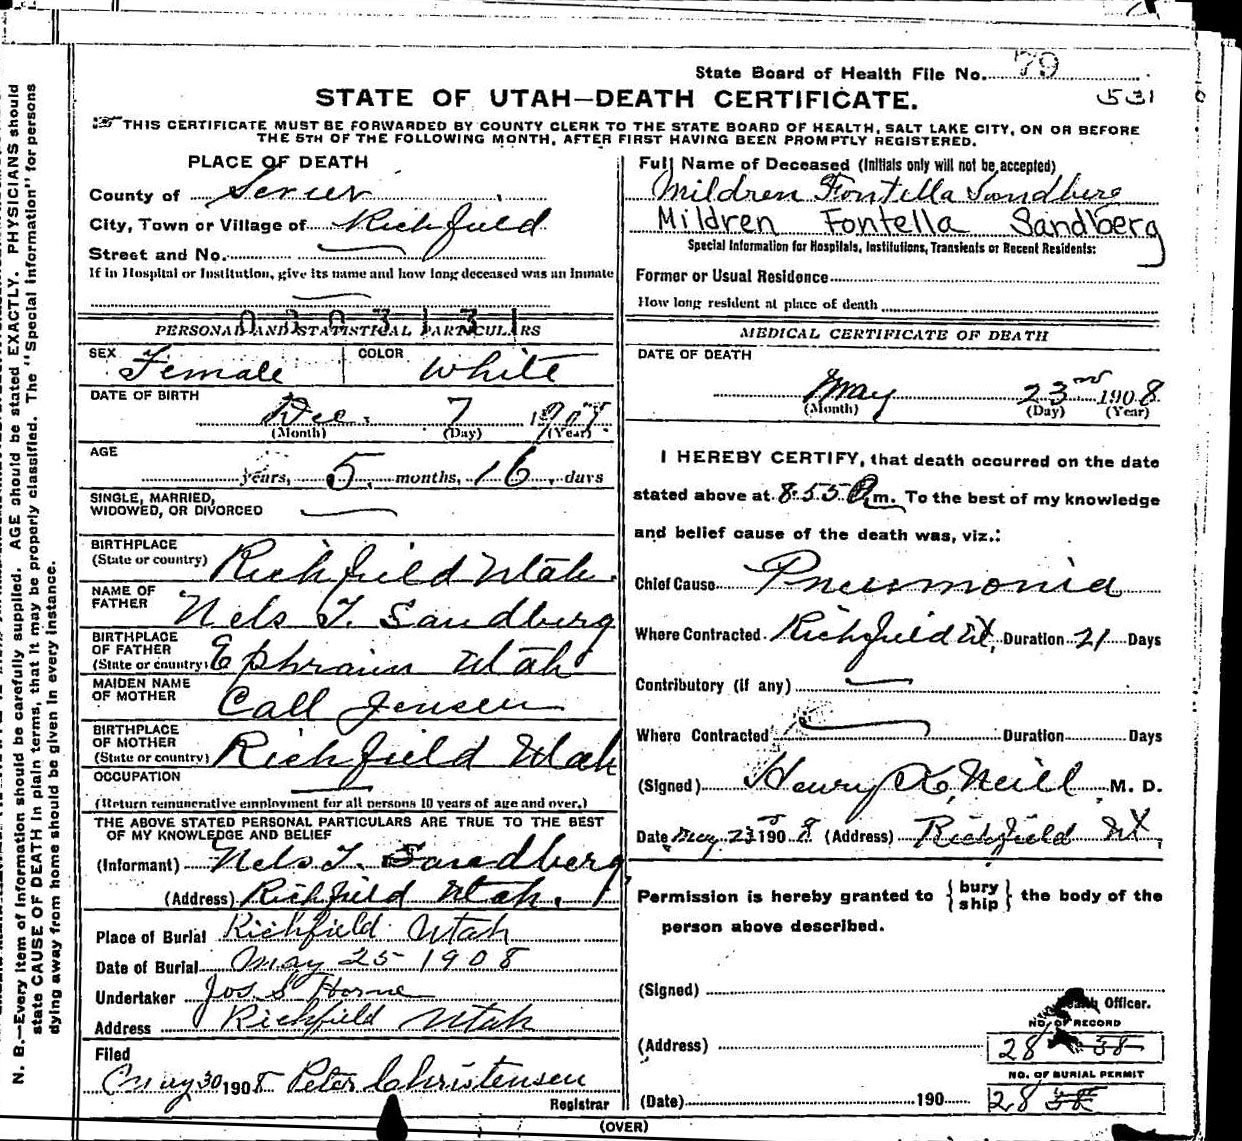 State Board of Health File No. 79
531
STATE OF UTAH—DEATH CERTIFICATE.
THIS CERTIFICATE MUST BE FORWARDED BY COUNTY CLERK TO THE STATE BOARD OF HEALTH, SALT LAKE CITY, ON OR BEFORE
THE 5TH OF THE FOLLOWING MONTH, AFTER FIRST HAVING BEEN PROMPTLY REGISTERED.
PLACE OF DEATH
County of Sevier
City, Town or Village of Richfield
Street and No.
If in Hospital or Institution, give its name and how long deceased was an inmate
PERSONAL AND STATISTICAL PARTICULARS
SEX Female COLOR White
DATE OF BIRTH
Dec. 7 1907
(Month) (Day) (Year)
AGE
years, 5 months, 16 days
SINGLE, MARRIED,
WIDOWED, OR DIVORCED
BIRTHPLACE
(State or country) Richfield Utah.
NAME OF
FATHER Nels T. Sandberg
BIRTHPLACE
OF FATHER
(State or country) Ephraim Utah
MAIDEN NAME
OF MOTHER Call Jensen
BIRTHPLACE
OF MOTHER
(State or country) Richfield Utah
OCCUPATION
(Return remunerative employment for all persons 10 years of age and over.)
THE ABOVE STATED PERSONAL PARTICULARS ARE TRUE TO THE BEST
OF MY KNOWLEDGE AND BELIEF
(Informant) Nels T. Sandberg
(Address) Richfield Utah.
Place of Burial Richfield Utah
Date of Burial May 25 1908
Undertaker Jos S Horne
Address Richfield Utah
Filed
May 30 1908 Peter Christensen
Registrar
Full Name of Deceased (Initials only will not be accepted)
Mildren Fontella Sandberg
Mildren Fontella Sandberg
Special Information for Hospitals, Institutions, Transients or Recent Residents:
Former or Usual Residence
How long resident at place of death
MEDICAL CERTIFICATE OF DEATH
DATE OF DEATH
May 23rd 1908
(Month) (Day) (Year)
I HEREBY CERTIFY, that death occurred on the date
stated above at 8.55 P.m. To the best of my knowledge
and belief cause of the death was, viz.:
Chief Cause Pneumonia
Where Contracted Richfield Ut, Duration 21 Days
Contributory (if any)
Where Contracted Duration Days
(Signed) Henry K. Neill M. D.
Date May 23 1908 (Address) Richfield Ut,
Permission is hereby granted to { bury
ship } the body of the
person above described.
(Signed)
Health Officer.
NO. OF RECORD
(Address) 28
NO. OF BURIAL PERMIT
(Date) 190 28
(OVER)
N. B.—Every item of information should be carefully supplied. AGE should be stated EXACTLY. PHYSICIANS should
state CAUSE OF DEATH in plain terms, that it may be properly classified. The "Special Information" for persons
dying away from home should be given in every instance.